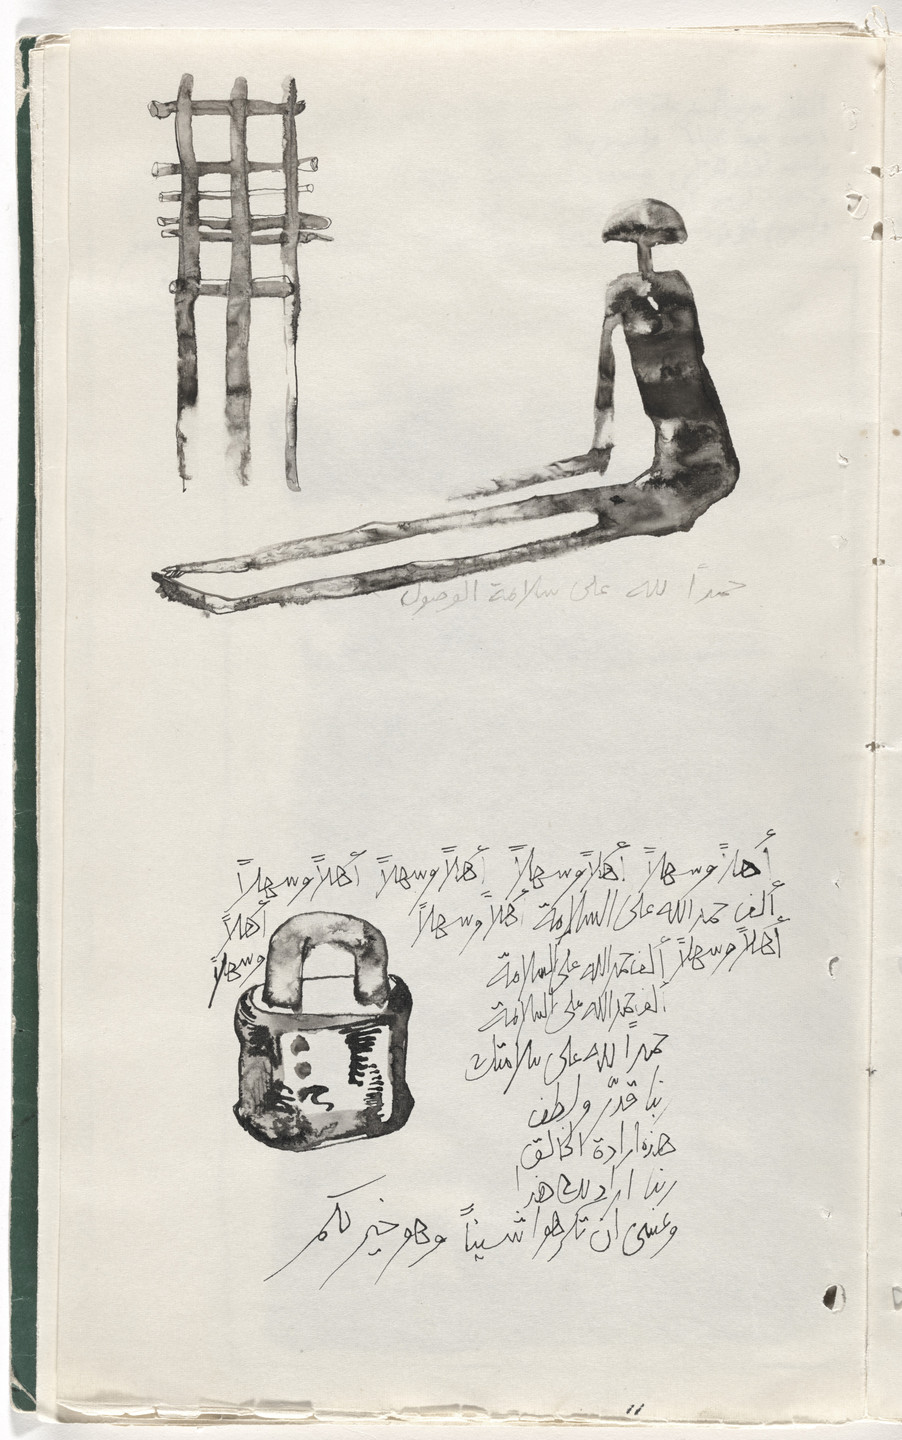 حمداً لله على سلامة الوصول
أهلاً وسهلاً أهلاً وسهلاً أهلاً وسهلاً أهلاً وسهلاً
ألف حمد الله على السلامة أهلاً وسهلاً أهلاً
أهلاً وسهلاً ألف حمد الله على السلامة وسهلاً
ألف حمد الله على السلامة
حمداً لله على سلامتك
ربنا قدّر ولطف
هذه ارادة الخالق
ربنا اراد لك هذا
وعسى ان تكرهوا شيئاً وهو خير لكم